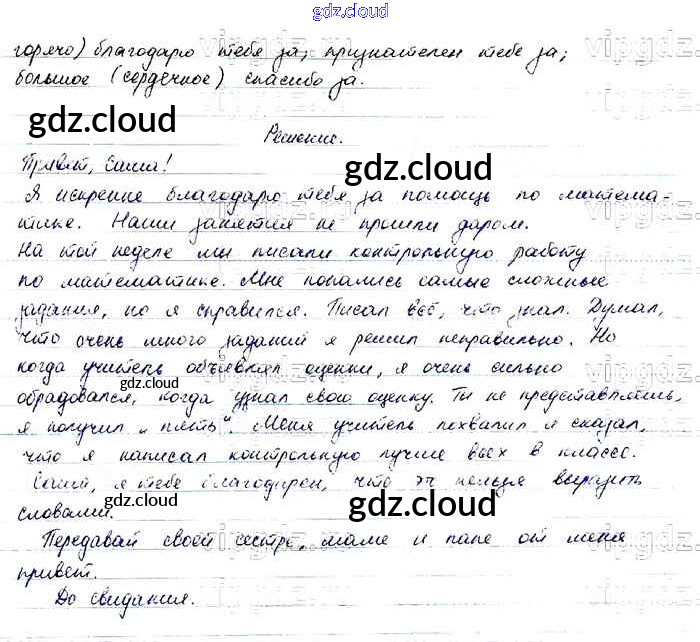 gdz.cloud
горячо) благодарю тебя за; признателен тебе за;
большое (сердечное) спасибо за.
gdz.cloud
Решение.
gdz.cloud
Привет, Саша!
Я искренне благодарю тебя за помощь по матема-
тике. Наши занятия не прошли даром.
На той неделе мы писали контрольную работу
по математике. Мне попались самые сложные
задания, но я справился. Писал всё, что знал. Думал,
что очень много заданий я решил неправильно. Но
когда учитель объявлял оценки, я очень сильно
gdz.cloud
обрадовался, когда узнал свою оценку. Ты не представляешь,
я получил „пять“. Меня учитель похвалил и сказал,
что я написал контрольную лучше всех в классе.
Саша, я тебе благодарен, что нельзя выразить
gdz.cloud
gdz.cloud
словами.
Передавай своей сестре, маме и папе от меня
привет.
До свидания.